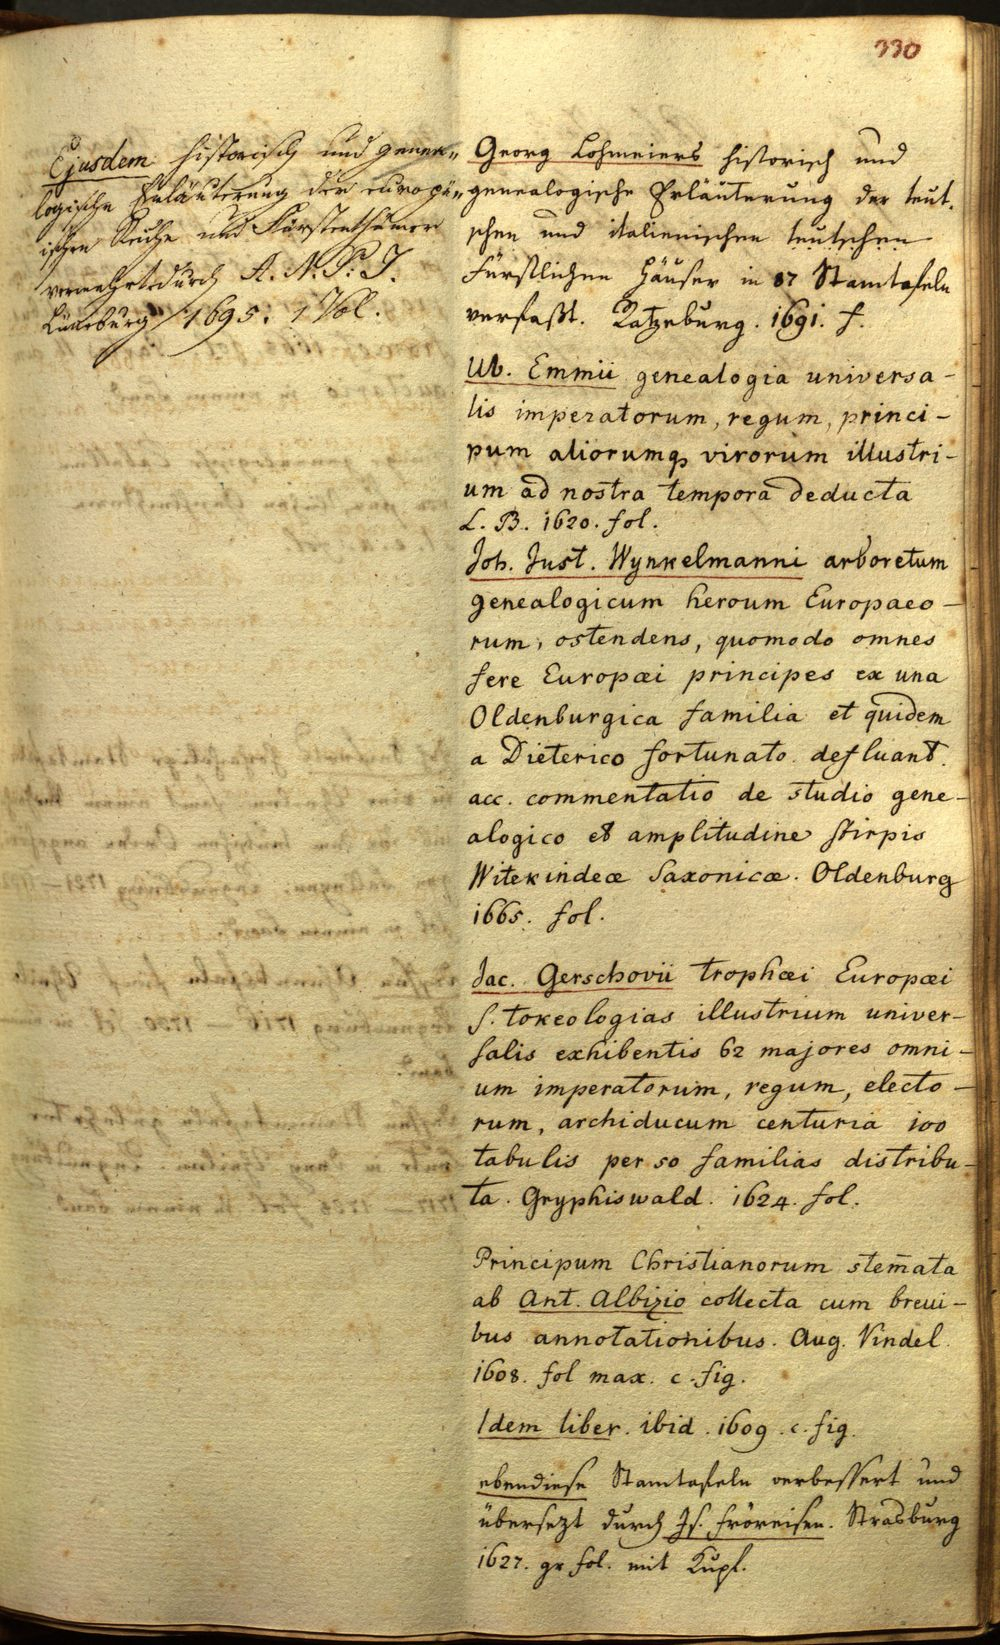 330
Ejusdem historisch und genea„
logische Erläuterung der europä„
ischen Reiche und Fürstenthümer
vermehrt durch A. N. P. J.
Lüneburg 1695. 1 Vol.
Georg Lohmeiers historisch und
genealogische Erläuterung der teut.
schen und italienischen teutschen
Fürstlichen Häuser in 87 Stamtafeln
verfaßt. Ratzeburg. 1691. f.
Ub. Emmii genealogia universa-
lis imperatorum, regum, princi-
pum aliorumq, virorum illustri-
um ad nostra tempora deducta
L. B. 1620. fol.
Joh. Just. Wynkelmanni arboretum
genealogicum heroum Europaeo-
rum, ostendens, quomodo omnes
fere Europæi principes ex una
Oldenburgica familia et quidem
a Dieterico fortunato defluant.
acc. commentatio de studio gene-
alogico et amplitudine stirpis
Witekindeæ Saxonicæ. Oldenburg
1665. fol.
Jac. Gerschovii trophæi Europæi
s. tokeologias illustrium univer-
salis exhibentis 62 majores omni-
um imperatorum, regum, electo-
rum, archiducum centuria 100
tabulis per 50 familias distribu-
ta. Gryphiswald. 1624. fol.
Principum Christianorum stem̄ata
ab Ant. Albizio collecta cum brevi-
bus annotationibus. Aug. Vindel.
1608. fol max. c. fig.
Idem liber. ibid. 1609. c. fig.
ebendiese Stamtafeln verbessert und
übersezt durch Is. Fröreisen. Strasburg
1627. gr fol. mit Kupf.